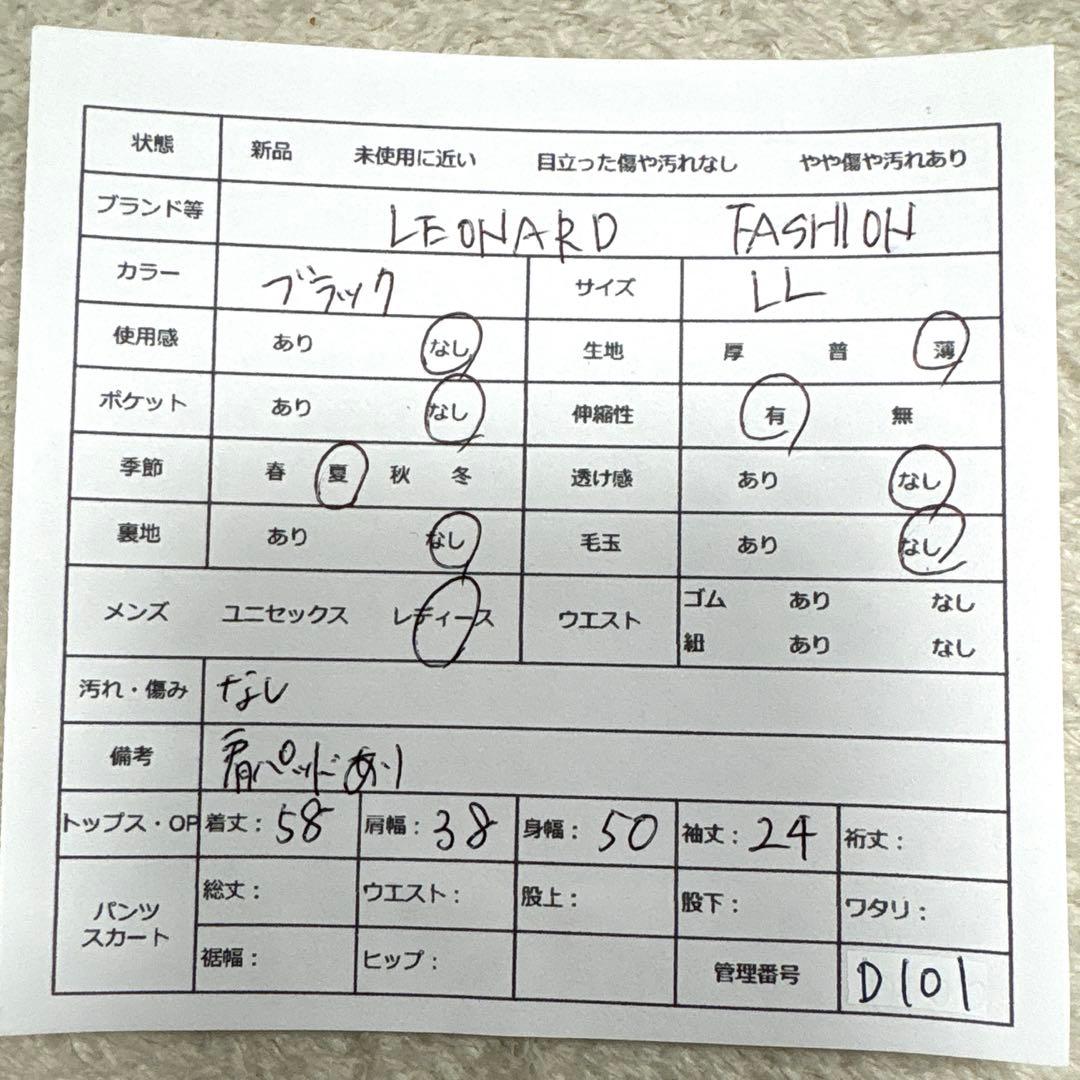 状態 新品 未使用に近い 目立った傷や汚れなし やや傷や汚れあり
ブランド等 LEONARD FASHION
カラー ブラック サイズ LL
使用感 あり なし 生地 厚 普 薄
ポケット あり なし 伸縮性 有 無
季節 春 夏 秋 冬 透け感 あり なし
裏地 あり なし 毛玉 あり なし
メンズ ユニセックス レディース ウエスト ゴム あり なし
紐 あり なし
汚れ・傷み なし
備考 肩パッドあり
トップス・OP 着丈: 58 肩幅: 38 身幅: 50 袖丈: 24 裄丈:
パンツ スカート 総丈: ウエスト: 股上: 股下: ワタリ:
裾幅: ヒップ: 管理番号 D101